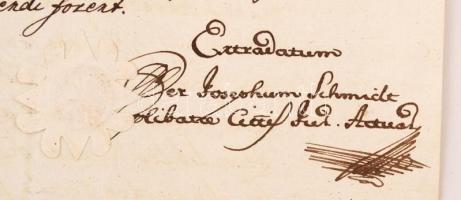 endi forent.
Extradatum
Per Josephum Schmidt
olibatae Cittis Jur. Actuar